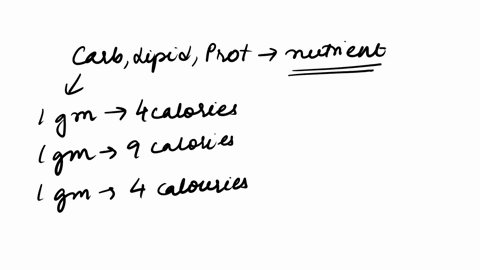 Carb, lipid, Prot → nutrient
1 gm → 4 calories
1 gm → 9 calories
1 gm → 4 calouries